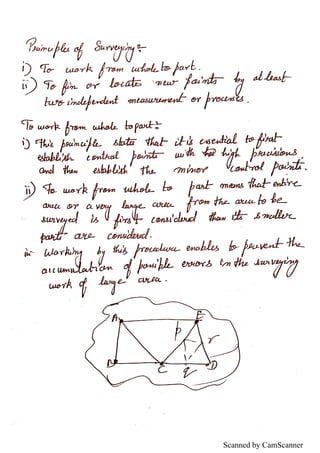 Principles of Surveying:-
i) To work from whole to part.
ii) To fix or locate new points by at least
two independent measurement or processes.
To work from whole to part:-
i) This principle states that it is essential to first
establish control points with high precisions
and then establish the minor control points.
ii) To work from whole to part means that entire
area or a very large area from the area to be
surveyed is first considered than its smaller
parts are considered.
iii Working by this procedure enables to prevent the
accumulation of possible errors in the surveying
work of large area.
A E
P r
B C q D
Scanned by CamScanner